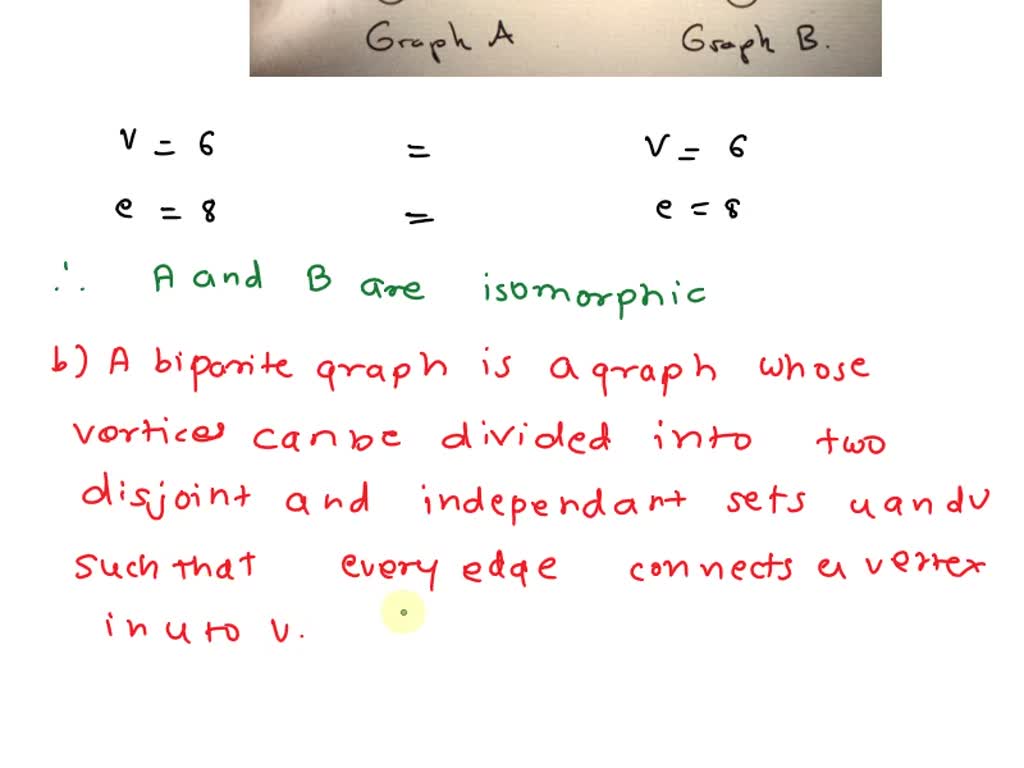 Graph A Graph B.
v = 6 = v = 6
e = 8 = e = 8
∴ A and B are isomorphic
b) A biparite graph is a graph whose
vortices can be divided into two
disjoint and independant sets u and v
such that every edge connects a vertex
in u to v.